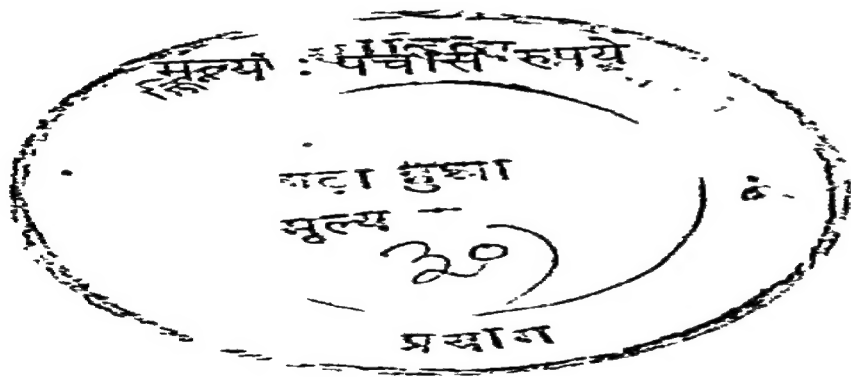 मूल्य : पचीस रुपये
बढ़ा हुआ
मूल्य -
३०)
प्रयाग